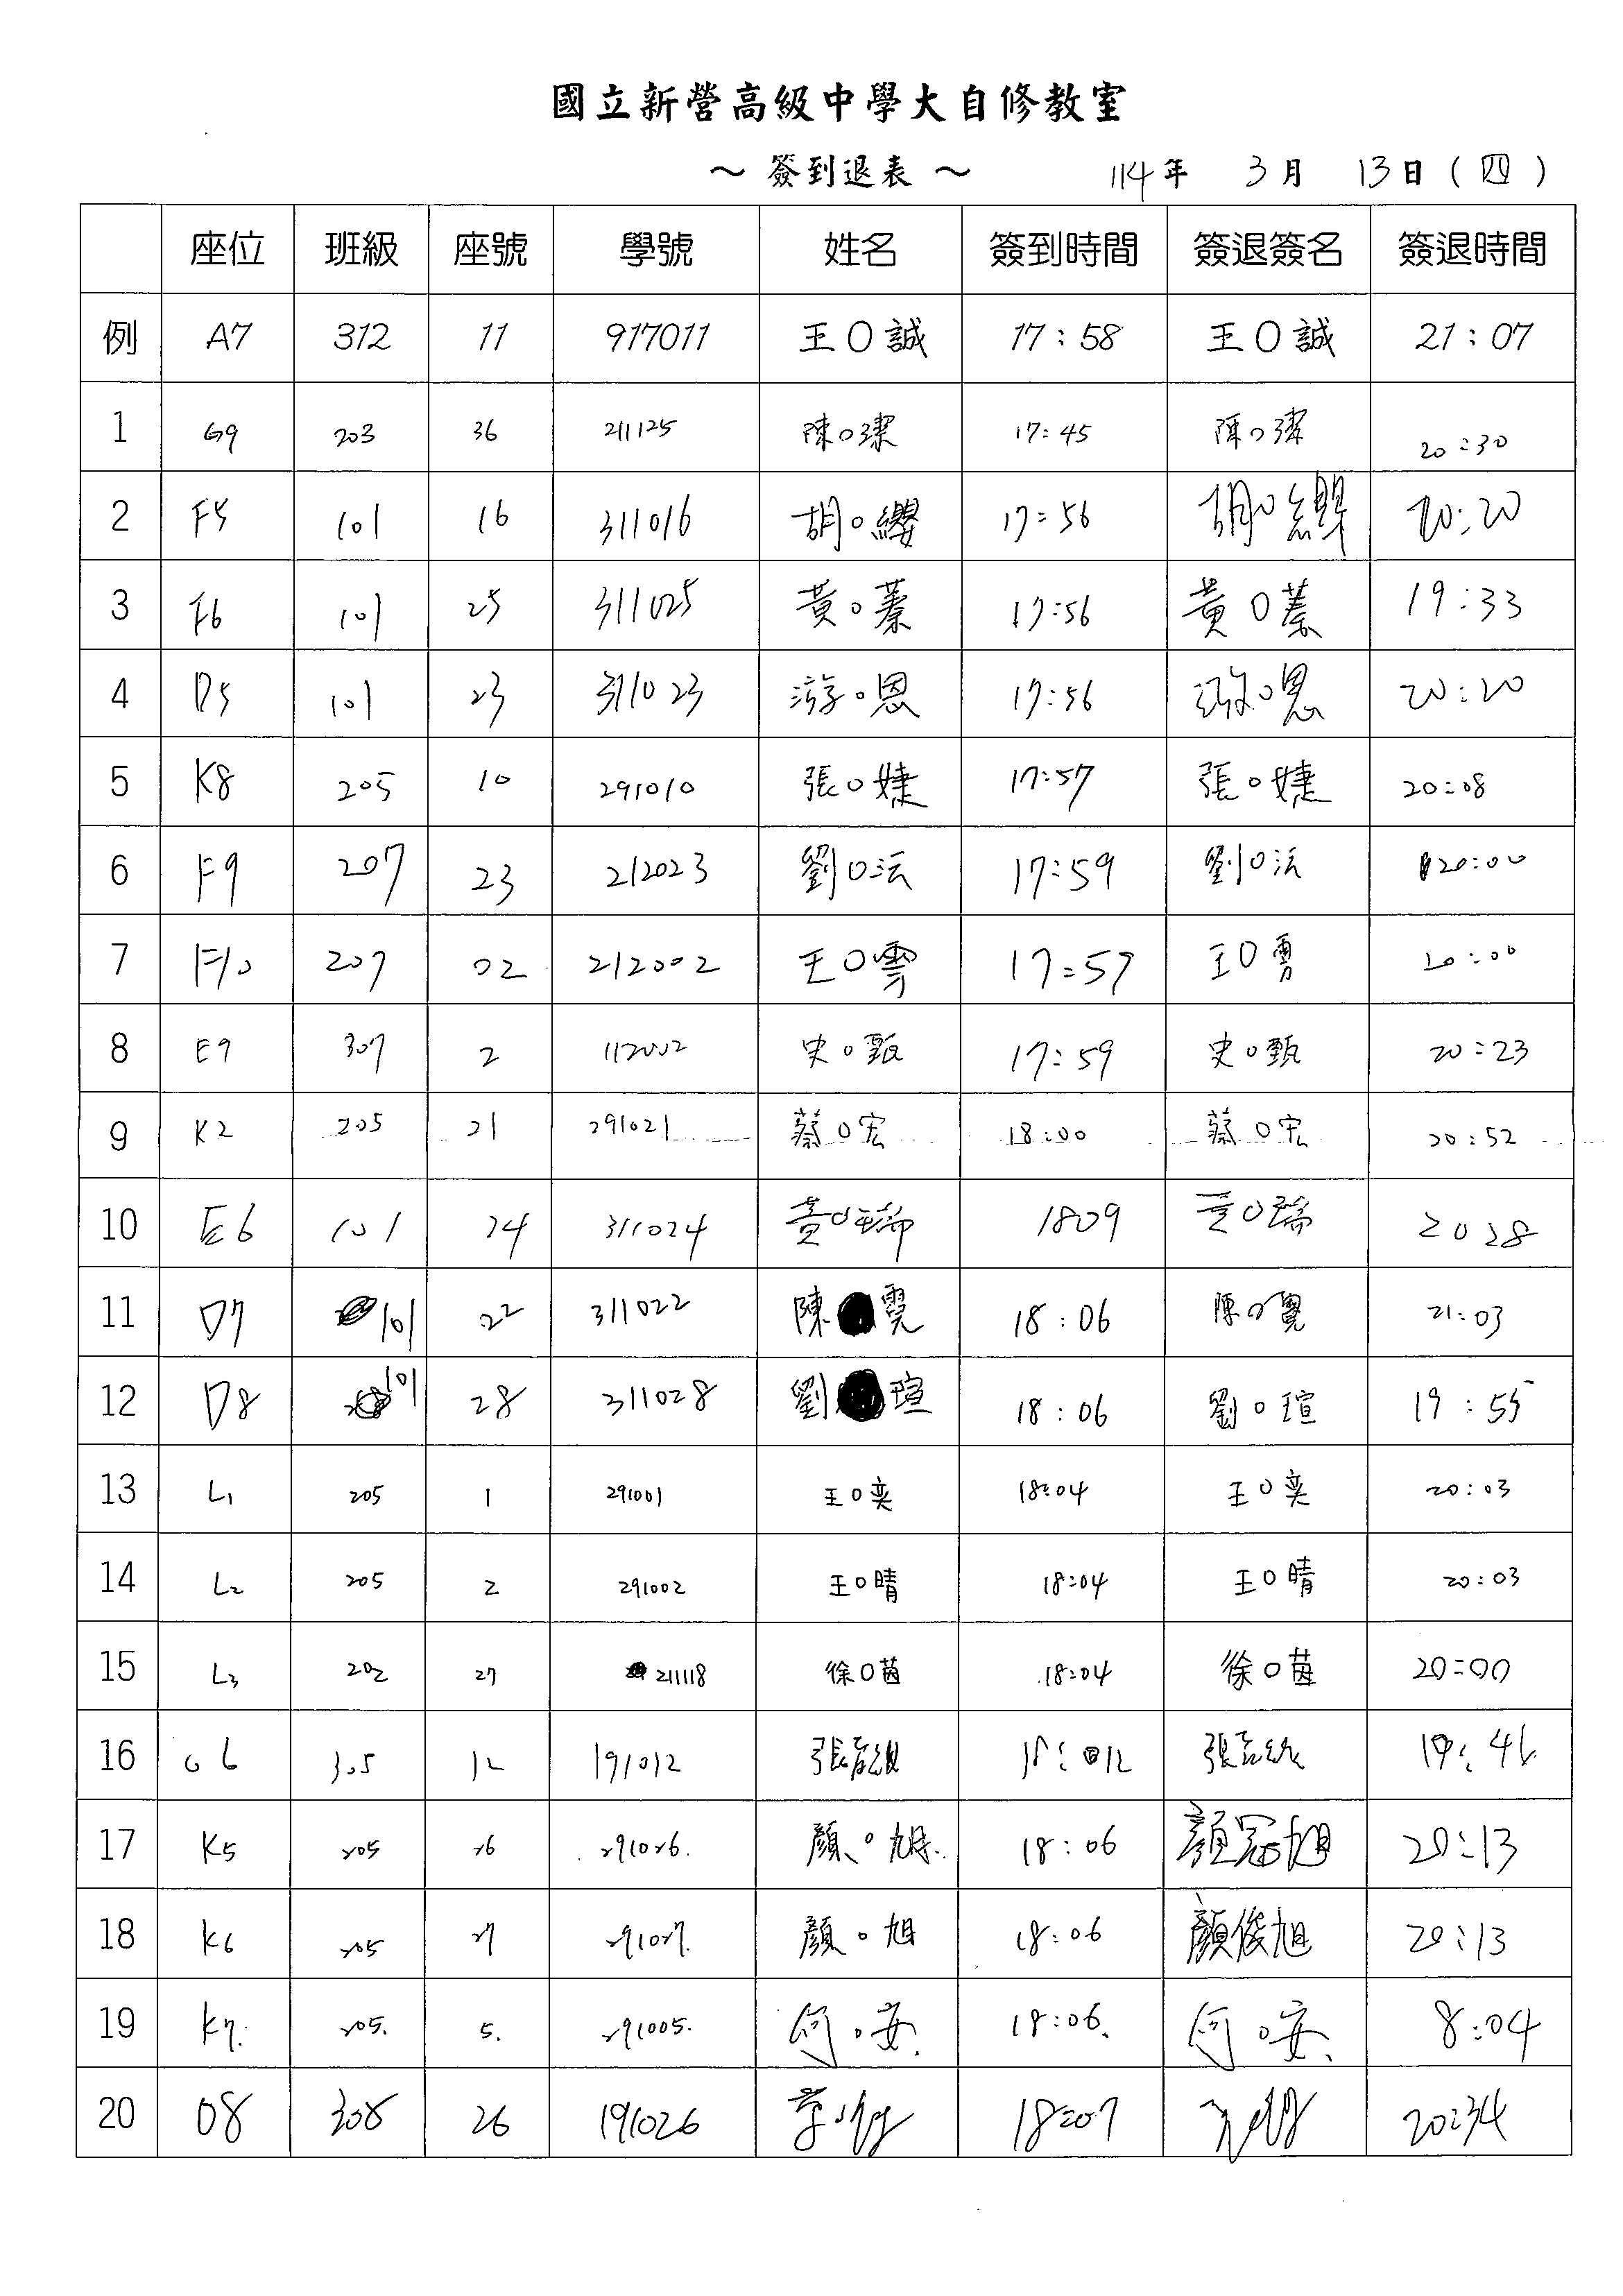 國立新營高級中學大自修教室
～ 簽到退表 ～ 114年 3月 13日 ( 四 )
座位 班級 座號 學號 姓名 簽到時間 簽退簽名 簽退時間
例 A7 312 11 917011 王O誠 17:58 王O誠 21:07
1 G9 203 36 211125 陳O潔 17:45 陳O潔 20:30
2 F5 101 16 311016 胡O纓 17:56 胡O纓 20:20
3 F6 101 25 311025 黃O蓁 17:56 黃O蓁 19:33
4 D5 101 23 311023 游O恩 17:56 游O恩 20:20
5 K8 205 10 291010 張O婕 17:57 張O婕 20:08
6 F9 207 23 212023 劉O沄 17:59 劉O沄 20:00
7 F10 207 02 212002 王O雯 17:57 王O 20:00
8 E9 307 2 112002 史O甄 17:59 史O甄 20:23
9 K2 205 21 291021 蔡O宏 18:00 蔡O宏 20:52
10 E6 101 24 311024 黃O瑞 1809 黃O瑞 2028
11 D7 101 22 311022 陳 霓 18:06 陳O霓 21:03
12 D8 101 28 311028 劉 瑄 18:06 劉O瑄 19:55
13 L1 205 1 291001 王O奕 18:04 王O奕 20:03
14 L2 205 2 291002 王O晴 18:04 王O晴 20:03
15 L3 202 27 211118 徐O茵 18:04 徐O茵 20:00
16 06 305 12 191012 張 18: 張 19:46
17 K5 205 26 291026. 顏O旭. 18:06 顏冠旭 20:13
18 K6 205 27 291027. 顏O旭 18:06 顏俊旭 20:13
19 K7. 205. 5. 291005. 何O安. 18:06. 何O安. 8:04
20 08 308 26 191026 18:07 20:34